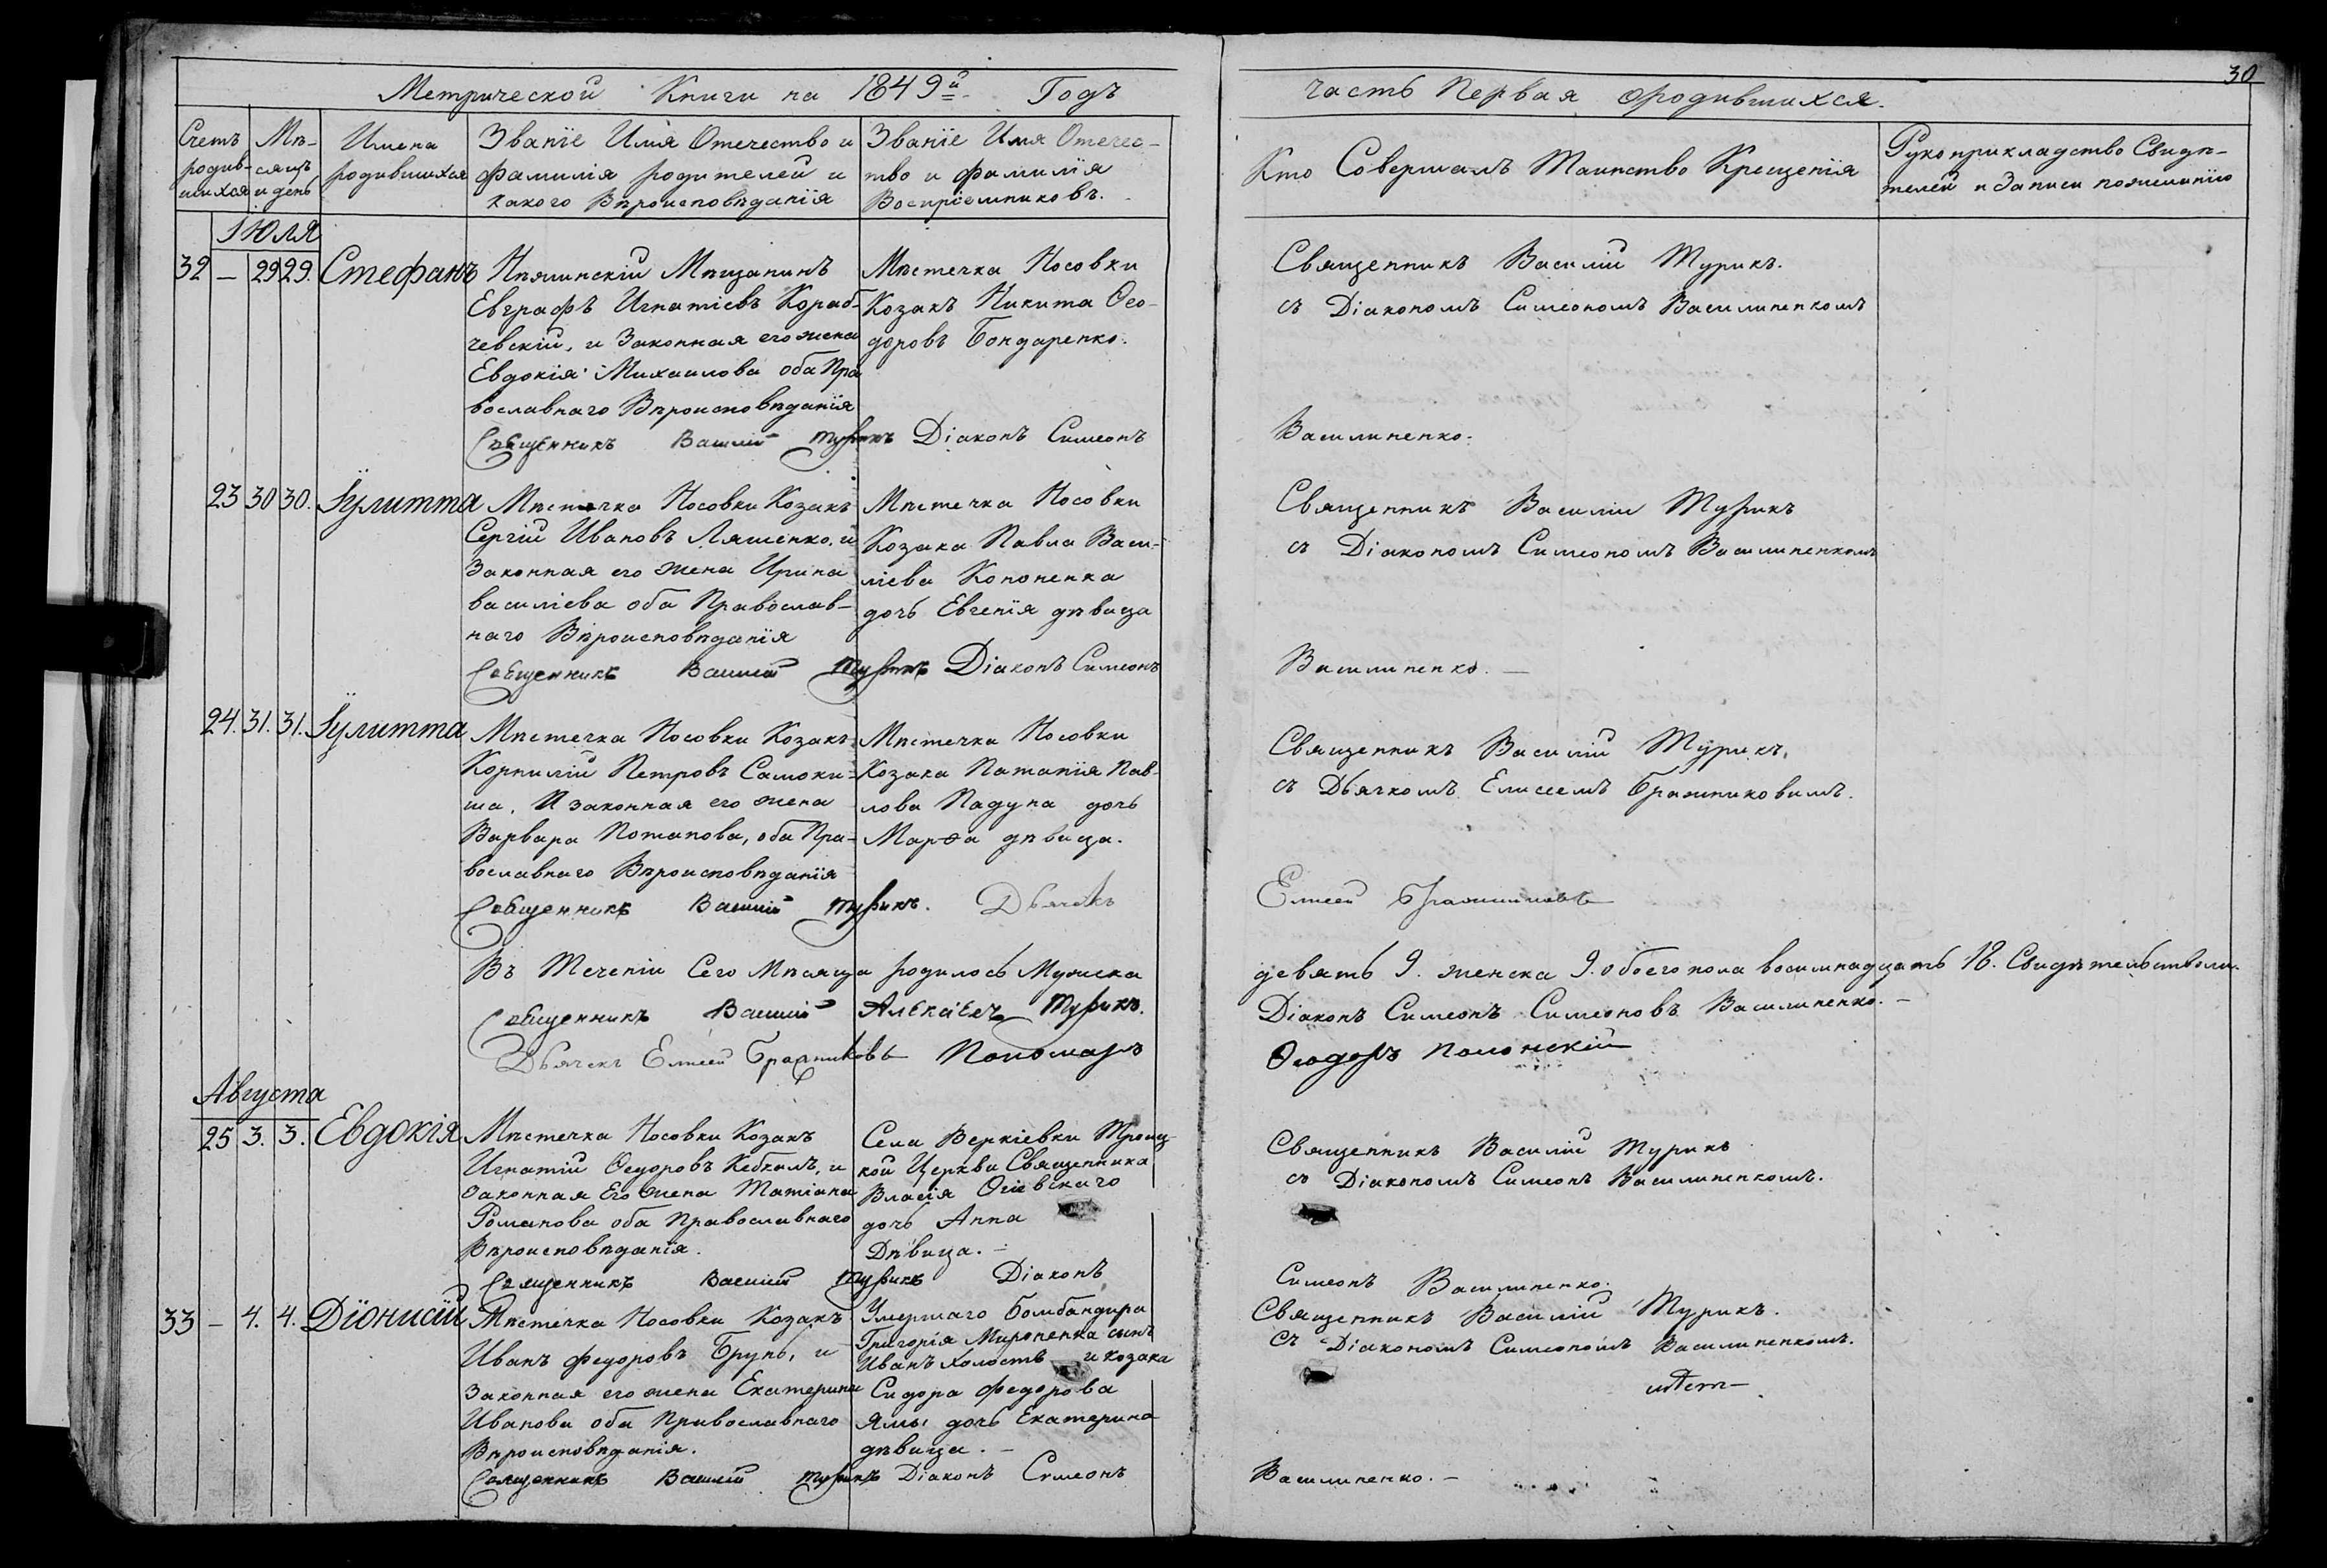 Метрической Книги на 1849й Годъ
Счетъ родив-шихся
Мѣ-сяцъ и день
Имена родившихся
Званїе Имя Отечество и
фамилїя родителей и
какого Вѣроисповѣданїя
Званїе Имя Отечес-
тво и фамилїя
Воспрїемниковъ.
Iюля
32 — 29 29. Стефанъ
Нѣжинскій Мѣщанинъ
Евграфъ Игнатіевъ Кораб-
чевскій, и Законная его жена
Евдокія Михаилова оба Пра
вославнаго Вѣроисповѣданїя
Мѣстечка Носовки
Козакъ Никита Ѳео-
доровъ Бондаренко.
Священникъ Василій Турикъ Діаконъ Симеонъ
23 30 30. Іулитта
Мѣстечка Носовки Козакъ
Сергій Ивановъ Ляшенко, и
Законная его жена Ирина
василіева оба Православ-
наго Вѣроисповѣданїя
Мѣстечка Носовки
Козака Павла Васи-
ліева Кононенка
дочь Евгенїя дѣвица
Священникъ Василій Турикъ Діаконъ Симеонъ
24. 31. 31. Іулитта
Мѣстечка Носовки Козакъ
Корнилій Петровъ Самоки-
ша, И законная его жена
Варвара Потапова, оба Пра-
вославнаго Вѣроисповѣданїя
Мѣстечка Носовки
Козака Патапїя Пав-
лова Падуна дочь
Марѳа дѣвица.
Священникъ Василій Турикъ. Дьячекъ
Въ Теченіи Сего Мѣсяца родилось Мужска
Священникъ Василій Алексіевъ Турикъ.
Дьячекъ Елисей Бражниковъ Пономарь
Августа
25 3. 3. Евдокія
Мѣстечка Носовки Козакъ
Игнатій Ѳедоровъ Кебкалъ, и
законная Его жена Татіана
Романова оба Православнаго
Вѣроисповѣданїя.
Села Веркіевки Троиц-
кой Церкви Священника
Власія Огіевскаго
дочь Анна
Дѣвица. —
Священникъ Василій Турикъ Діаконъ
33 — 4. 4. Дїонисій
Мѣстечка Носовки Козакъ
Иванъ федоровъ Брунь, и
Законная его жена Екатерина
Иванова оба Православнаго
Вѣроисповѣданїя.
Умершаго Бомбандира
Григорія Мироненка сынъ
Иванъ холостъ и козака
Сидора федорова
Ямы дочь Екатерина
дѣвица. —
Священникъ Василій Турикъ Діаконъ Симеонъ
30
часть Первая ородившихся.
Кто Совершалъ Таинство Крещенїя
Рукоприкладство Свидѣ-
телей и Записи пожеланїю
Священникъ Василій Турикъ.
съ Діакономъ Симеономъ Василиненкомъ
Василиненко.
Священникъ Василій Турикъ
съ Діакономъ Симеономъ Василиненкомъ
Василиненко. —
Священникъ Василій Турикъ,
съ Дьячкомъ Елисеемъ Бражниковимъ.
Елисей Бражниковъ
девять 9. женска 9. обоего пола восимнадцать 18. Свидѣтельствовали
Діаконъ Симеонъ Симеоновъ Василиненко. —
Ѳеодоръ Полонскій
Священникъ Василій Турикъ
съ Діакономъ Симеонъ Василиненкомъ.
Симеонъ Василиненко.
Священникъ Василій Турикъ.
Съ Діакономъ Симеономъ Василиненкомъ.
Василиненко. —